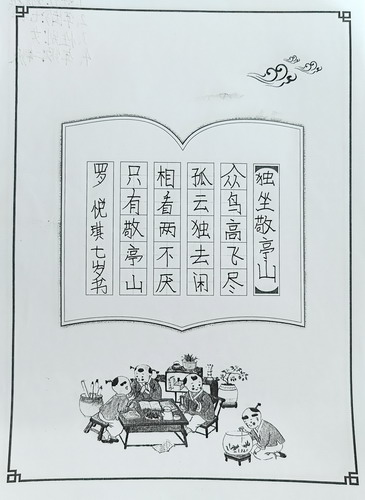 独坐敬亭山
众鸟高飞尽
孤云独去闲
相看两不厌
只有敬亭山
罗悦琪七岁书